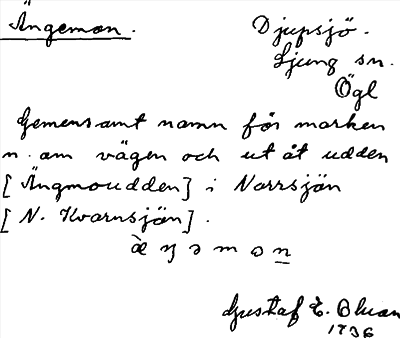 Ängemon. Djupsjö.
Ljung sn.
Ögl
Gemensamt namn för marken
n. om vägen och ut åt udden
[Ängmoudden] i Norrsjön
[N. Kvarnsjön].
Gustaf E.
1936